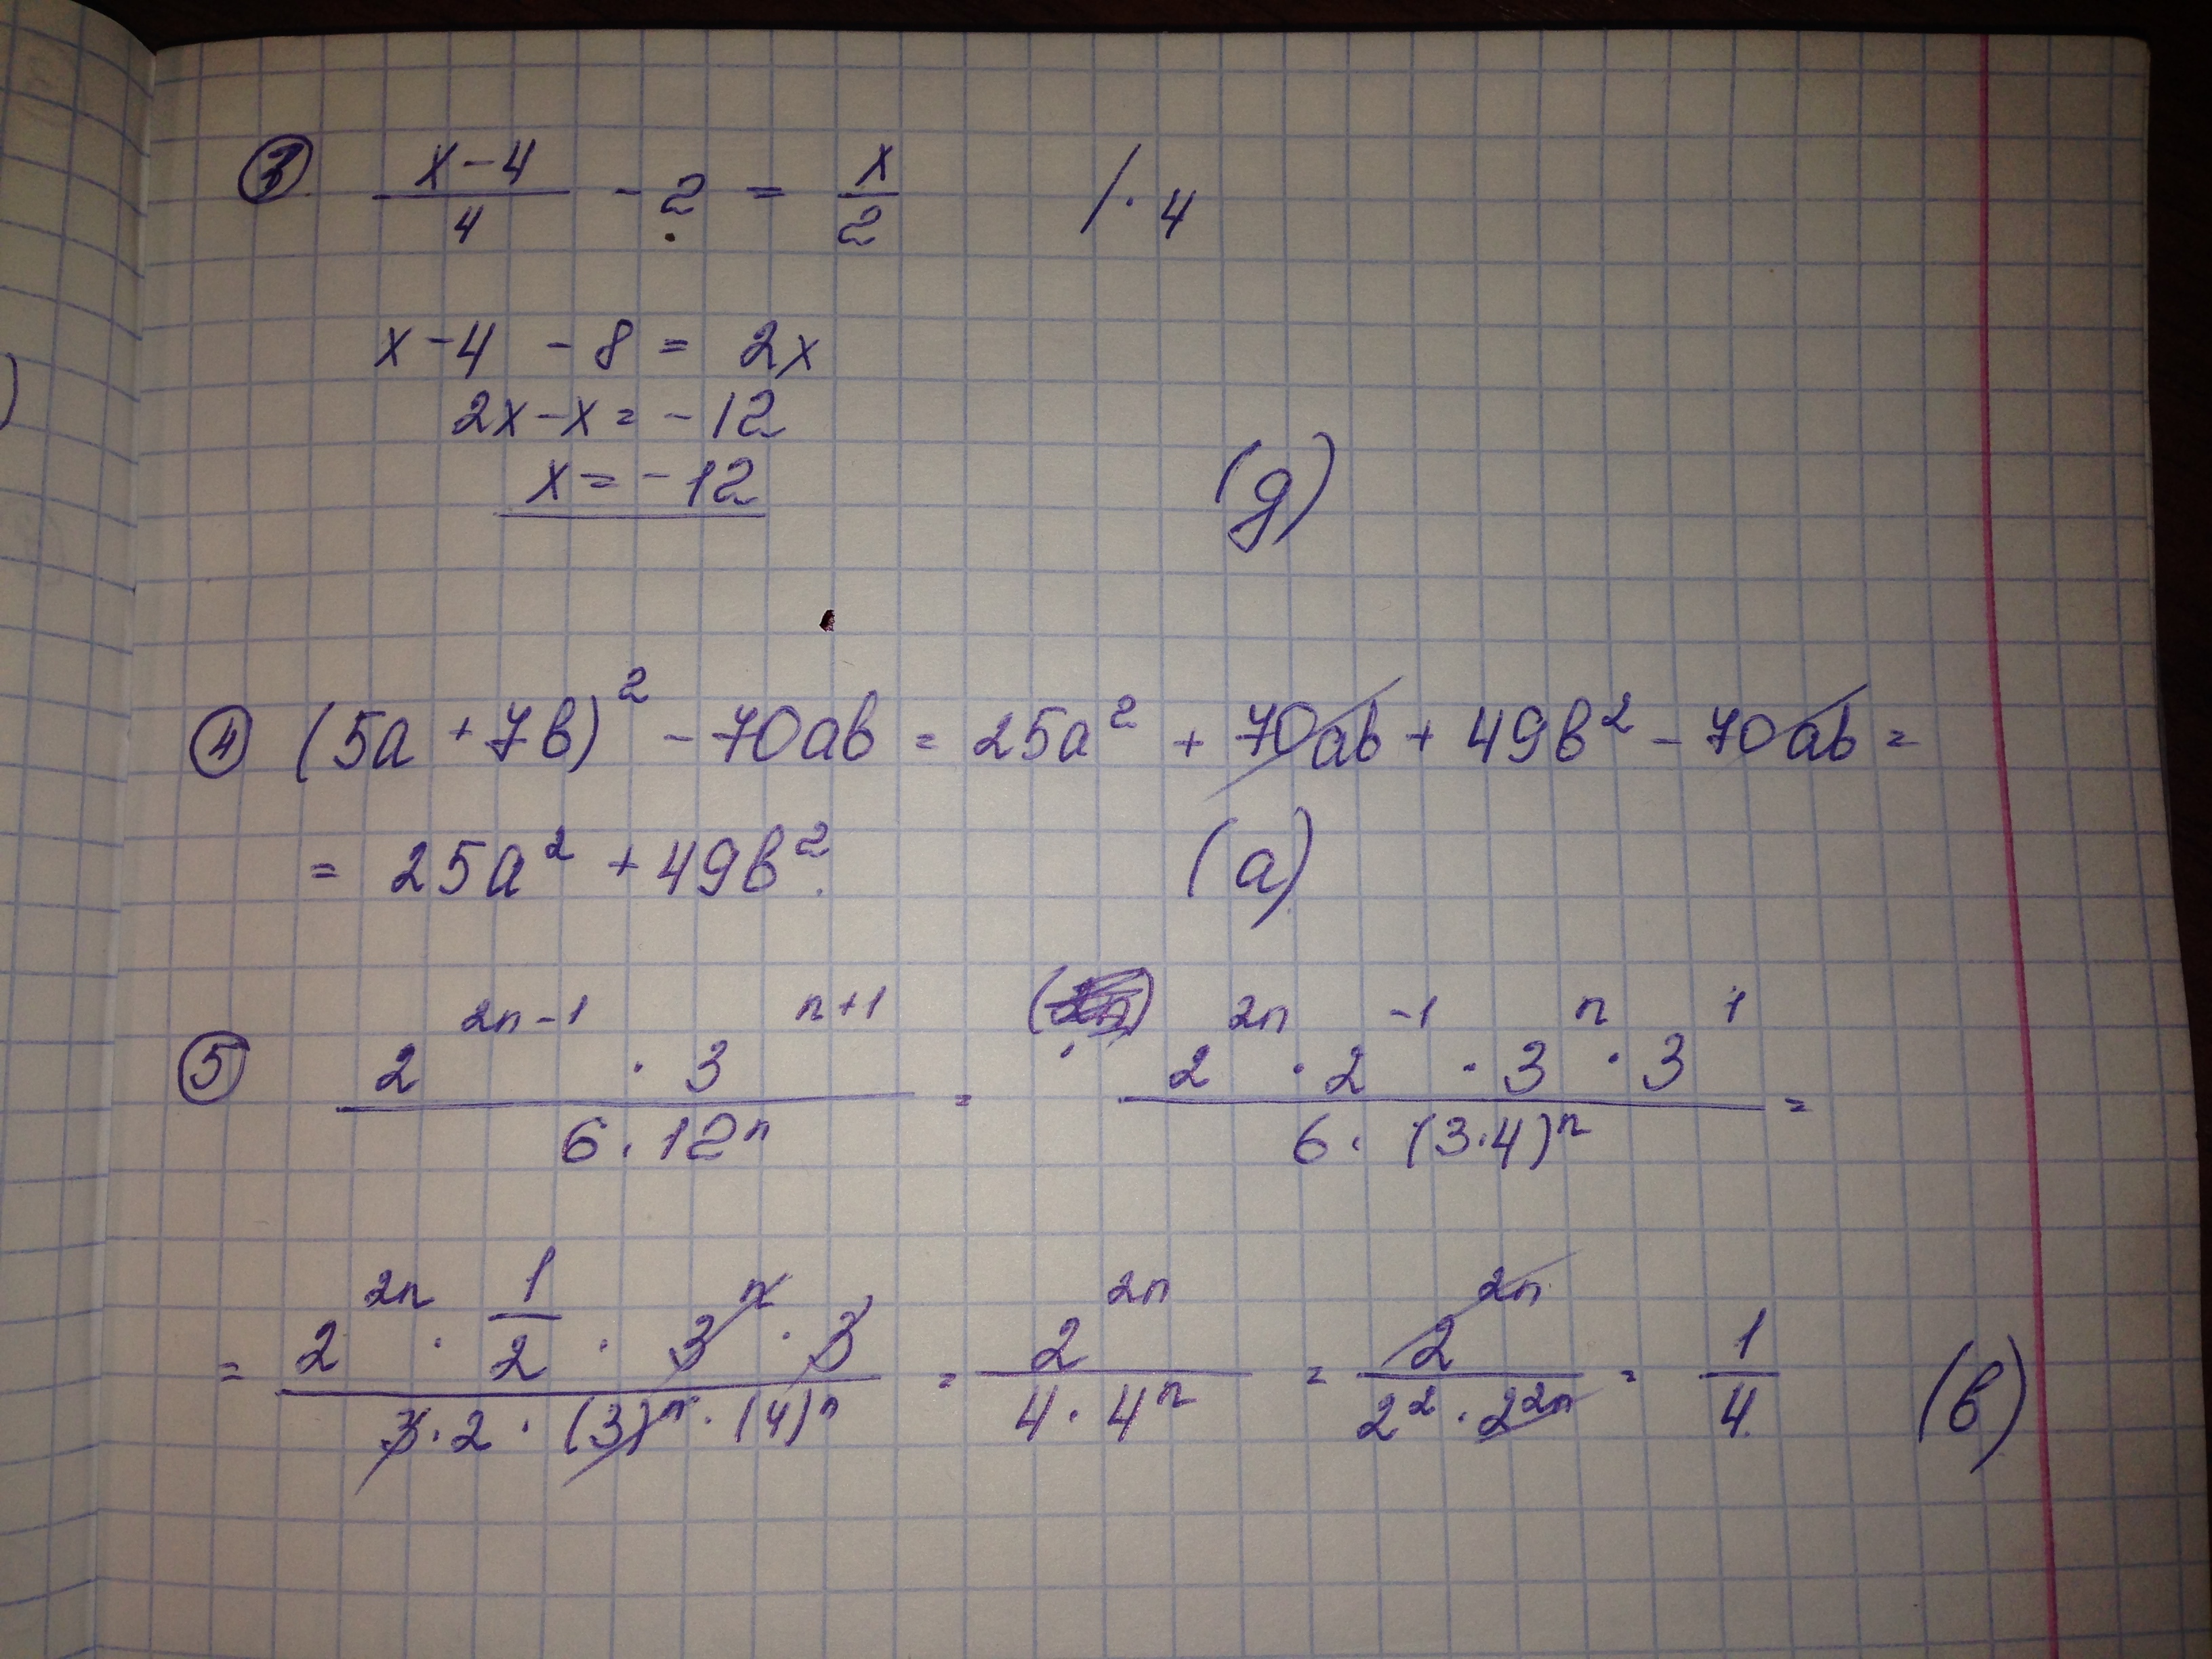 ③ (x-4)/4 - 2 = x/2 / · 4
x-4 - 8 = 2x
2x-x = -12
x = -12 (g)
④ (5a + 7b)² - 70ab = 25a² + 70ab + 49b² - 70ab =
= 25a² + 49b². (a)
⑤ (2^(2n-1) · 3^(n+1))/(6 · 12^n) = (2^(2n) · 2^(-1) · 3^n · 3^1)/(6 · (3·4)^n) =
= (2^(2n) · 1/2 · 3^n · 3)/(3·2 · (3)^n · (4)^n) = 2^(2n)/(4 · 4^n) = 2^(2n)/(2² · 2^(2n)) = 1/4 (в)